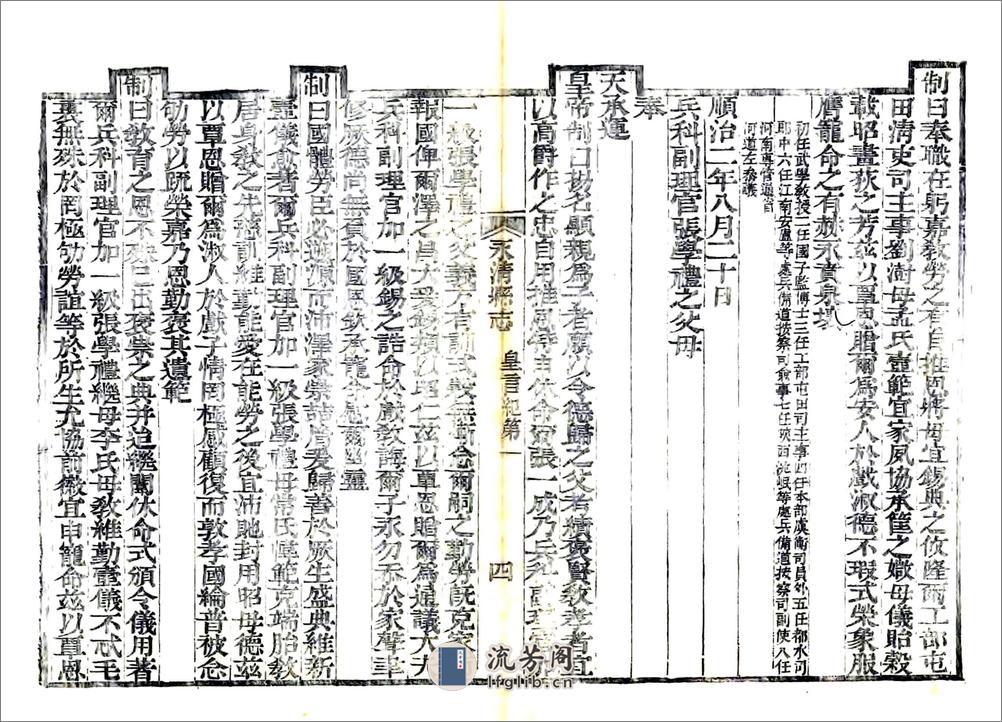 制曰奉職在躬嘉教勞之有自推恩將母宜錫典之偵隆爾工部屯
田淸吏司主事劉澍母孟氏壼範宜家夙協承筐之媺母儀貽穀
載昭畫荻之芳茲以覃恩贈爾爲安人於戲淑德不瑕式榮象服
膺寵命之有赫永賁泉壤
初任武學教授二任國子監博士三任工部屯田司主事四任本部虞衡司員外五任都水司
郎中六任江南安廬等處兵備道按察司僉事七任陝西洮岷等處兵備道按察司副使八任
河南專管過
河道左參議
順治二年八月二十日
兵科副理官張學禮之父母
奉
天承運
皇帝制曰揚名顯親爲子者願以令德歸之父考績褒賢敎孝者宜
以高爵作之忠自用推恩特自休命爾張一成乃兵科副理官加
一級張學禮之父義方有訓式穀無慚念爾嗣之勤勞旣克家
報國俾爾澤之昌大爰錫類以昭仁茲以覃恩贈爾爲通議大夫
兵科副理官加一級錫之誥命於戲敎誨爾子永勿忝於家聲聿
修厥德尚無負於國恩欽承寵命慰爾幽靈
制曰國體勞臣必遡源而沛澤家崇喆胤爰歸善於厥生盛典維新
壼儀僉著爾兵科副理官加一級張學禮母常氏閫範克端胎敎
居身敎之先慈訓維勤能愛在能勞之後宜沛貤封用昭母德茲
以覃恩贈爾爲淑人於戲子情罔極感顧復而敦孝國綸普被念
劬勞以疏榮嘉乃恩勤褒其遺範
制曰敎育之恩不殊已出褒崇之典并追繼闈休命式頒令儀用著
爾兵科副理官加一級張學禮繼母李氏母敎維勤壼儀不忒毛
裏無殊於罔極劬勞誼等於所生允協前徽宜申寵命茲以覃恩
永淸縣志
皇言紀第一
四
流芳阁
lfglib.cn